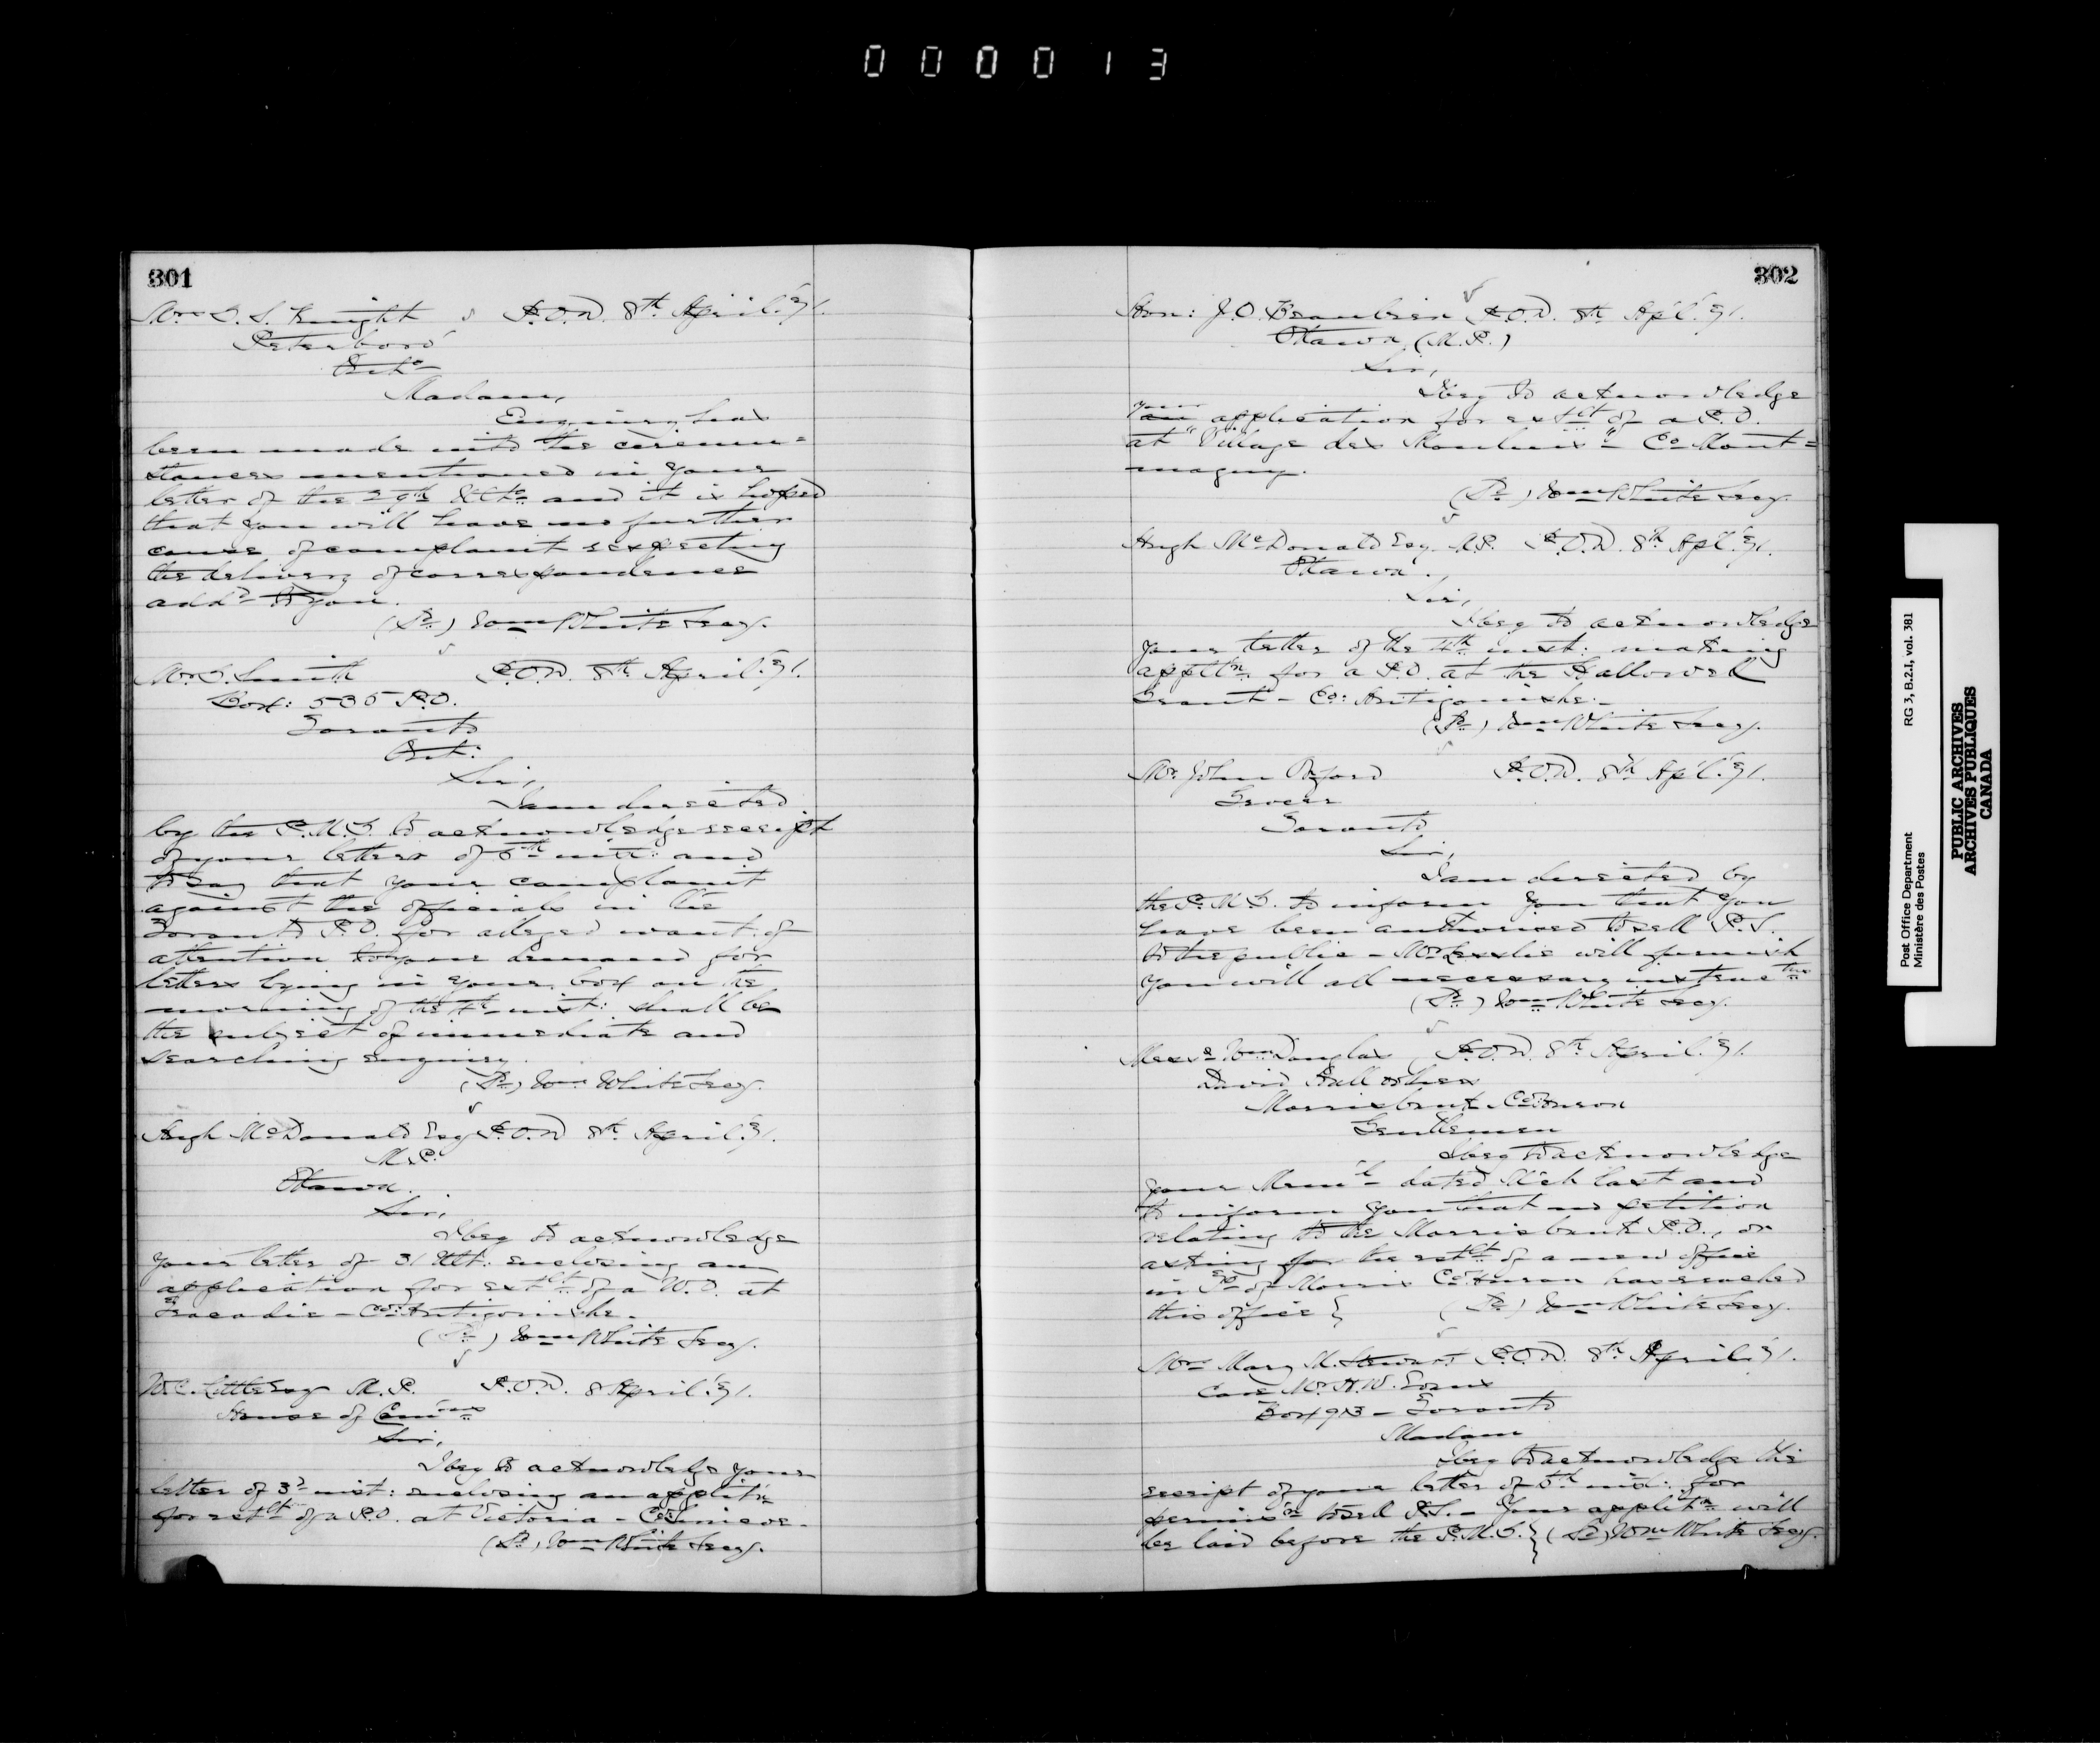 000013
301
Mrs S. S. Knight P.O.D. 8th April. '71.
Peterboro'
Onto
Madam,
Enquiry has
been made into the circum=
stances mentioned in your
letter of the 29th Ulto and it is hoped
that you will have no further
cause of complaint respecting
the delivery of correspondence
addd to you.
(Sd) Wm White Secy.
Mr S. Smith P.O.D. 8th April. '71.
Box: 535 P.O.
Toronto
Ont:
Sir,
I am directed
by the P.M.G. to acknowledge receipt
of your letters of 5th inst: and
to say that your complaint
against the officials in the
Toronto P.O. for alleged want of
attention to your demand for
letters lying in your box on the
morning of the inst: shall be
the subject of immediate and
searching enquiry.
(Sd) Wm White Secy.
Hugh McDonald Esq P.O.D 8th April. '71.
M.P.
Ottawa.
Sir,
I beg to acknowledge
your letter of 31 Ult. enclosing an
application for estlt of a W.O. at
Tracadie - Co: Antigonishe.
(Sd) Wm White Secy.
W.C. Little Esq M.P. P.O.D. 8 April. '71.
House of Comons
Sir,
I beg to acknowledge your
letter of 3d inst: enclosing an applictn
for estlt of a P.O. at Victoria - Co Simcoe.
(Sd) Wm White Secy.
302
Hon: J.O. Beaubien P.O.D. 8th Apl. '71.
Ottawa, (M.P.)
Sir,
I beg to acknowledge
your
an application for estlt of a P.O.
at "Village des Moulins" - Co Mont=
magny.
(Sd) Wm White Secy.
Hugh McDonald Esq. M.P. P.O.D. 8th Apl. '71.
Ottawa.
Sir,
I beg to acknowledge
your letter of the 4th inst: making
appltn for a P.O. at the Hallowell
Grant - Co: Antigonishe.
(Sd) Wm White Secy.
Mr John P.O.D. 8th Apl. '71.
Grocer
Toronto
Sir,
I am directed by
the P.M.G. to inform you that you
have been authorised to sell P.S.
to the public - Mr Lesslie will furnish
you will all necessary instructns
(Sd) Wm White Secy.
Messrs Wm Douglas P.O.D. 8th April. '71.
David Hall others
Morrisbank Co Huron
Gentlemen
I beg to acknowledge
your Meml dated Mch last and
to inform you that no petition
relating to the Morrisbank P.O., or
asking for the estlt of a new office
in Tp of Morris Co Huron has reached
this office } (Sd) Wm White Secy.
Mrs Mary M. Stewart P.O.D. 8th April '71.
Care Mr H.W.
Box 913 - Toronto
Madam
I beg to acknowledge the
receipt of your letter of 5th inst: for
permissn to sell P.S. - Your applictn will
be laid before the P.M.G. } (Sd) Wm White Secy.
Post Office Department
Ministère des Postes
RG 3, B.2.I, vol. 381
PUBLIC ARCHIVES
ARCHIVES PUBLIQUES
CANADA